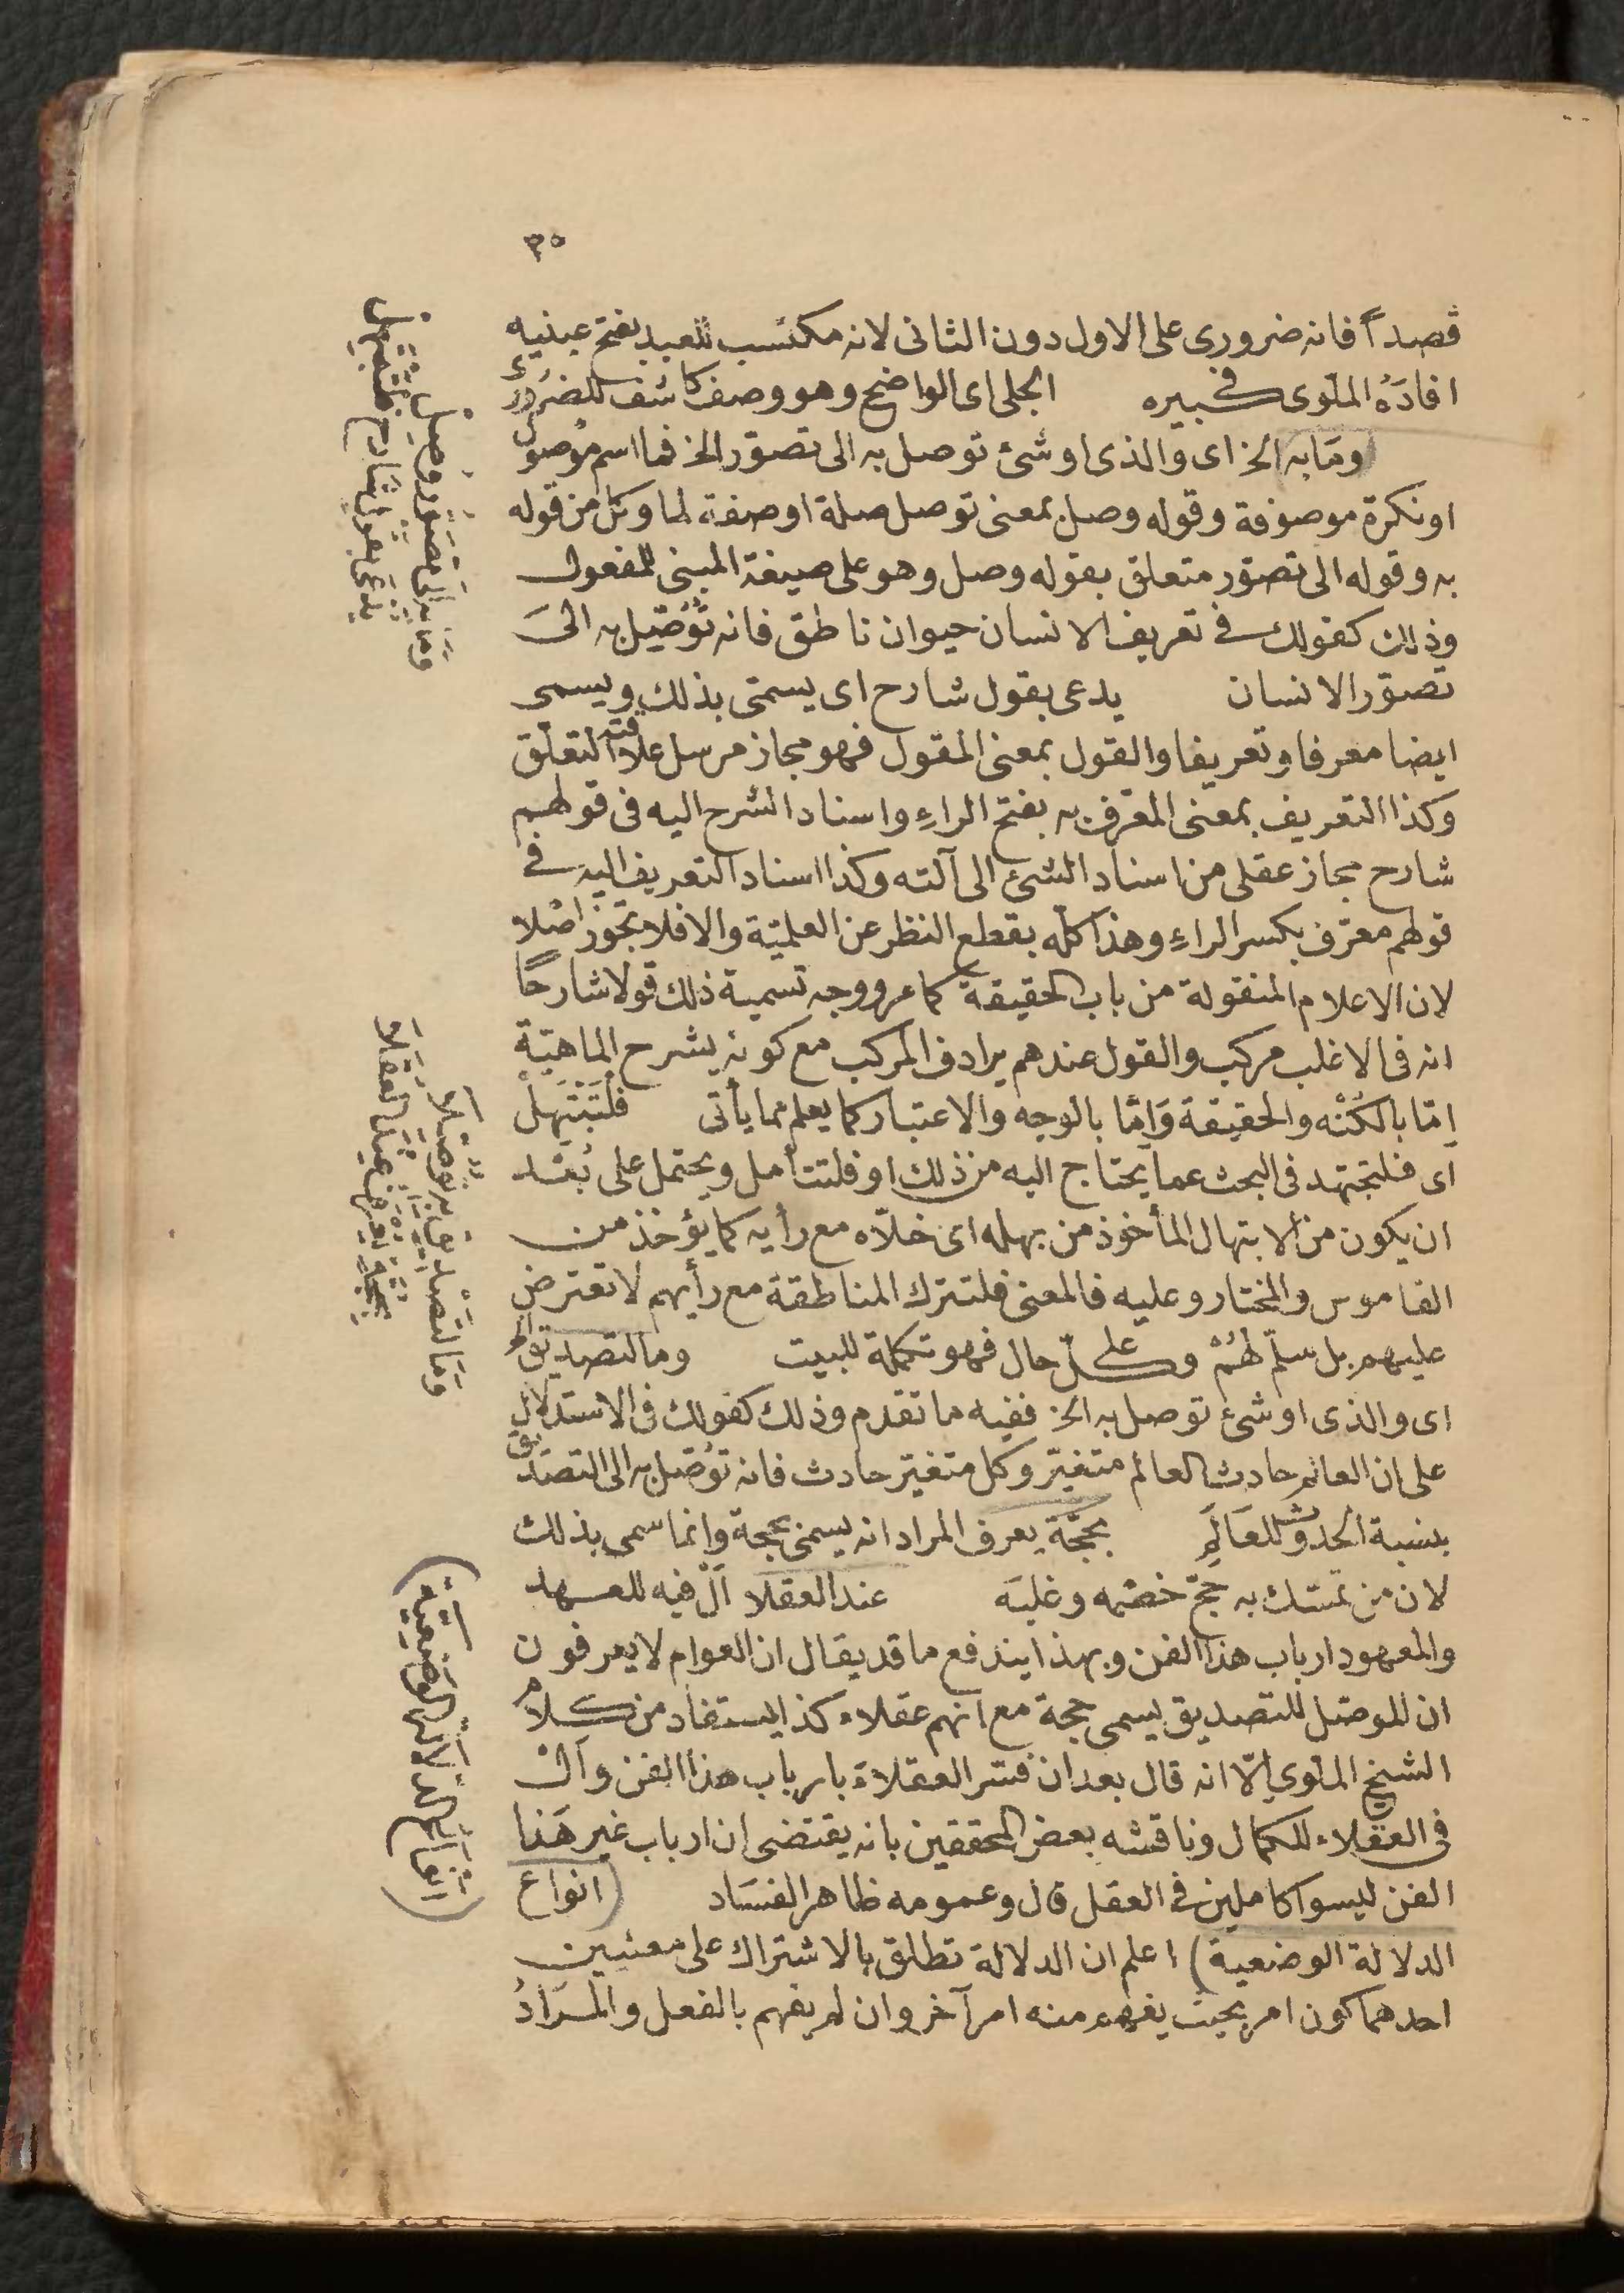 ٣٥
قصدا فانه ضرورى على الاول دون الثانى لانه مكتسب للعبد بفتح عينيه
افادَهُ الملّوى فى كبيره الجلى اى الواضح وهو وصف كاشف للضرورىّ
ومَا به الخ اى والذى او شئ توصل به الى تصوّر الخ فما اسم موصول
او نكرة موصوفة وقوله وصل بمعنى توصل صلة او صفة لما وكل من قوله
به وقوله الى تصوّر متعلق بقوله وصل وهو على صيغة المبنى للمفعول
وذلك كقولك فى تعريف الانسان حيوان ناطق فانه تُوُصِّل به الىَ
تصوّر الانسان يدعى بقول شارح اى يسمّى بذلك ويسمى
ايضا معرفا وتعريفا والقول بمعنى المقول فهو مجاز مرسل علاقته التعلّق
وكذا التعريف بمعنى المعرّف به بفتح الراءِ واسناد الشرح اليه فى قولهم
شارح مجاز عقلى من اسناد الشئ الى آلته وكذا اسناد التعريف اليه فى
قولهم معرّف بكسر الراءِ وهذا كلّه بقطع النظر عن العلميّة والا فلا تجوّز اصْلا
لان الاعلام المنقولة من باب الحقيقة كما مر ووجه تسمية ذلك قولا شارحًا
انه فى الاغلب مركب والقول عندهم يرادف المركب مع كونه يشرح الماهيّة
اِمّا بالكُنْه والحقيقة وَاِمّا بالوجه والاعتبار كما يعلم مما يأتى فلْتَبْتَهِلْ
اى فلتجتهد فى البحث عما يحتاج اليه من ذلك او فلتتأمل ويحتمل على بُعْد
ان يكون من الابتهال المأخوذ من بهله اى خلّاه مع رأيه كما يؤخذ من
القاموس والمختار وعليه فالمعنى فلتترك المناطقة مع رأيهم لا تعترض
عليهم بل سلّم لهُمْ وعلى كلّ حال فهو تكملة للبيت وما لتصديق الخ
اى والذى او شئ توصل به الخ ففيه ما تقدم وذلك كقولك فى الاستدلال
على ان العالم حادث العالم متغيّر وكل متغيّر حادث فانه تُوُصّل به الى التصديق
بنسبة الحدوث للعَالَمِ بحجَّة يعرف المراد انه يسمى بحجة وانما سمى بذلك
لان من تمسّك به حَجّ خصْمه وغلبَه عند العقلا اَلْ فيه للعهد
والمعهود ارباب هذا الفن وبهذا يندفع ما قد يقال ان العوام لا يعرفون
ان الموصّل للتصديق يسمى حجة مع انهم عقلاء كذا يستفاد من كلام
الشيخ الملّوى اِلّا انه قال بعد ان فسّر العقلاء بارباب هذا الفن وَالْ
فى العقلاء للكمال وناقشه بعض المحققين بانه يقتضى ان ارباب غير هَذا
الفن ليسوا كاملين فى العقل قال وعمومه ظاهر الفسَاد (انواع
الدلالة الوضعية) اعلم ان الدلالة تطلق بالاشتراك على معنيين
احدهما كون امر بحيث يفهم منه امر آخر وان لم يفهم بالفعل والمرَادُ
وَمَا بِهِ اِلَى تَصَوُّرٍ وُصِلْ
يُدْعَى بِقَوْلٍ شَارِحٍ فَلْتَبْتَهِلْ
وَمَا لِتَصْدِيقٍ بِهِ تُوُصِّلَا
بِحُجَّةٍ يُعْرَفُ عِنْدَ الْعُقَلَا
(انْوَاعُ الدِّلَالَةِ الْوَضْعِيَّةِ)